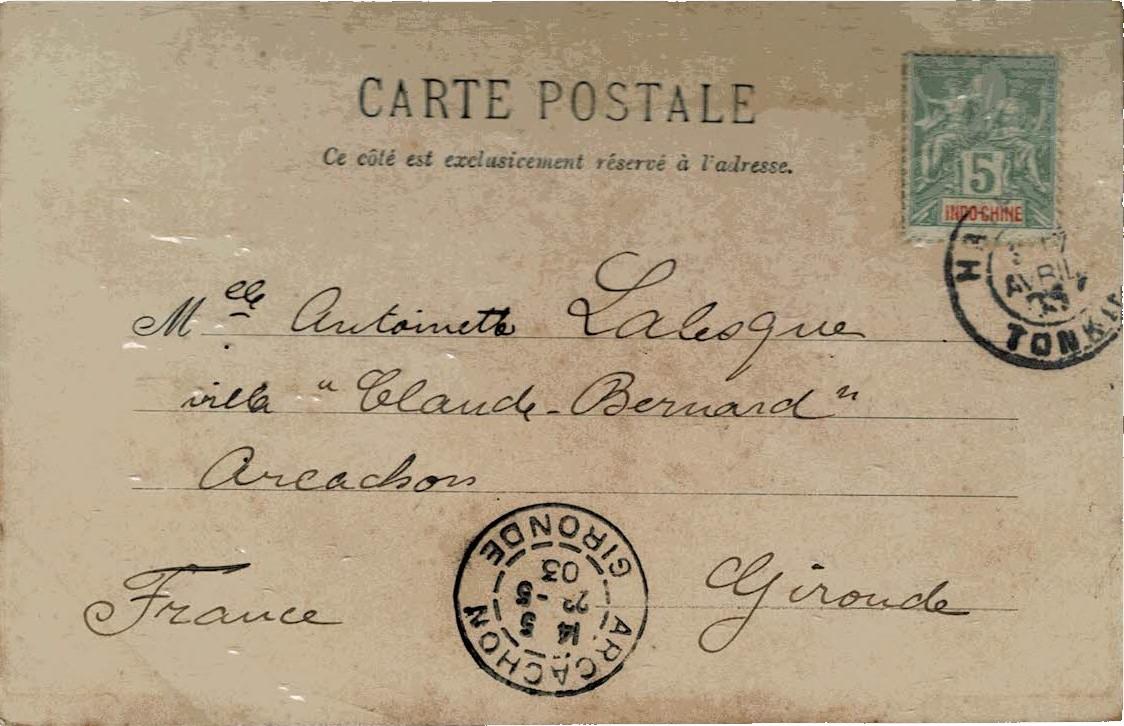 CARTE POSTALE
Ce côté est exclusicement réservé à l'adresse.
5
INDO-CHINE
AVRIL
03
TONKIN
Melle Antoinette Lalesque
villa "Claude-Bernard"
Arcachon
France
Gironde
ARCACHON
14 5
03
GIRONDE